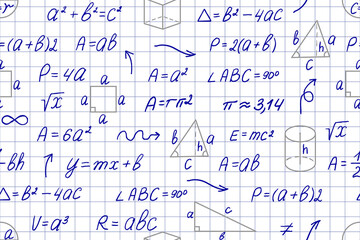 a²+b²=c²
△=B²-4AC
=(a+b)2
A=ab
P=2(a+b)
b
a
h
c
P=4a
A=a²
∠ABC=90°
a
a
a
√x
A=πr²
π≈3,14
∞
A=6a²
b
a
h
c
E=mc²
h
√x
-bh
y=mx+b
A=ab
A=1/2
△=B²-4AC
∠ABC=90°
P=(a+b)2
V=a³
R=abc
a
c
b
≠